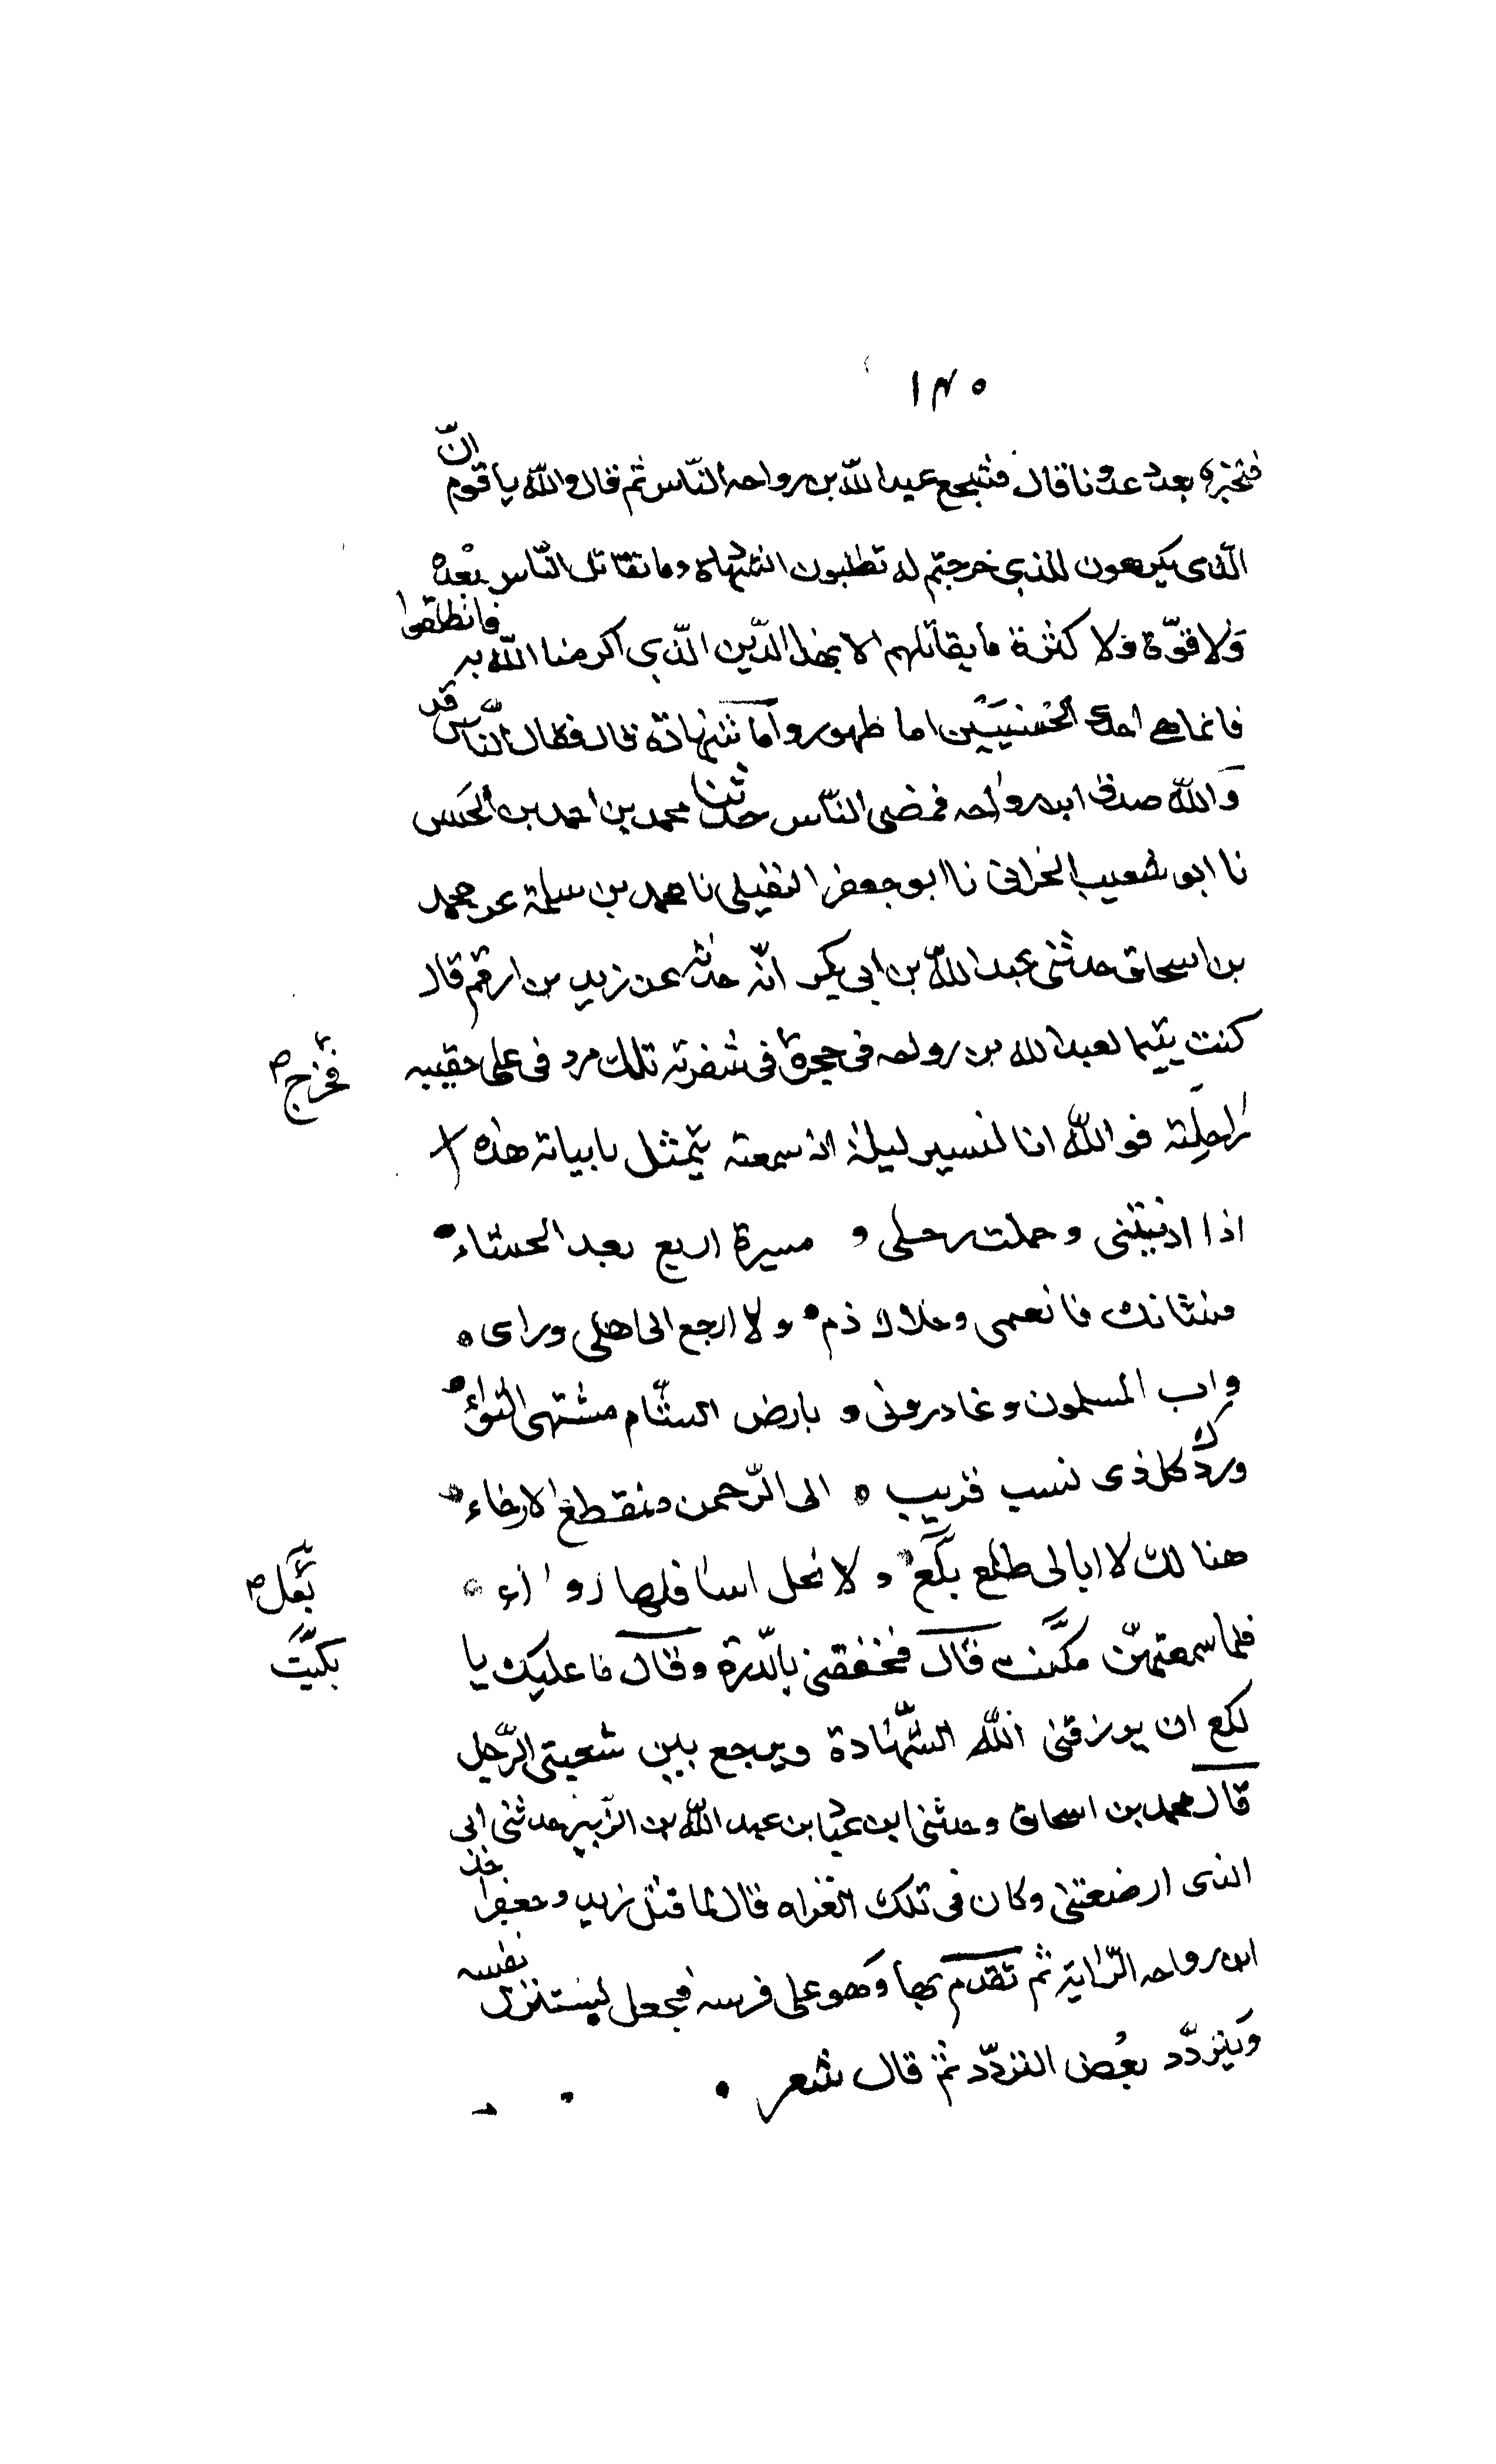 ١٣٥
فنخبره بعدد عدونا قال فشجع عبد الله بن رواحه الناس ثم قال والله يا قوم انّ
الذى تكرهون للذي خرجتم له تطلبون الشهادة وما نقاتل الناس بعدة
ولا قوّة ولا كثرة ما نقاتلهم الا بهذا الدّين الّذي اكرمنا الله به فانطلقوا
فانما هي احدى الحسنيين اما ظهور وامّا شهادة قال فقال النّاس قد
والله صدق ابن رواحه فمضى النّاس حدثنا محمد بن احمد بن الحسن
نا ابو شعيب الحرانى نا ابو جعفر النفيلى نا محمد بن سلمة عن محمد
بن اسحاق حدثنى عبد اللّه بن ابى بكر انّه حدثه عن زيد بن ارقم قال
كنت يتيما لعبد الله بن رواحه فى حجره فى سفرته تلك مردفى على حقيبه
فخرج ص
راحلته فوالله انا لنسير ليلة اذ سمعته يتمثل بابياته هذه
اذا ادنيتنى وحملت رحلى و مسيرة اربع بعد الحساء
فشانك فانعمى وخلاك ذم ولا ارجع الى اهلى وراى
واب المسلمون وغادرونى و بارض الشام مشتهى الثواء
وردّك كل ذى نسب قريب الى الرّحمن منقطع الاخاء
هنالك لا ابالى طلع بكّع و لا نحل اسافلها رواء
بعل ص
فلما سمعتهنّ مكّيت قال فخفقنى بالدّرة وقال ما عليك يا
بكيت
لكع ان يرزقنى اللّه الشّهادة ويرجع بين شعبتى الرّحل
قال محمد بن اسحاق وحدثنى ابن عباد بن عبد اللّه بن الزّبير حدثنى ابى
الذى ارضعتنى وكان فى تلك الغزاه قال لما قتل زيد وجعفر اخذ
ابن رواحه الرّاية ثم تقدم بها وهو على فرسه فجعل يستنزل نفسه
ويتردّد بعض التردّد ثمّ قال شعر